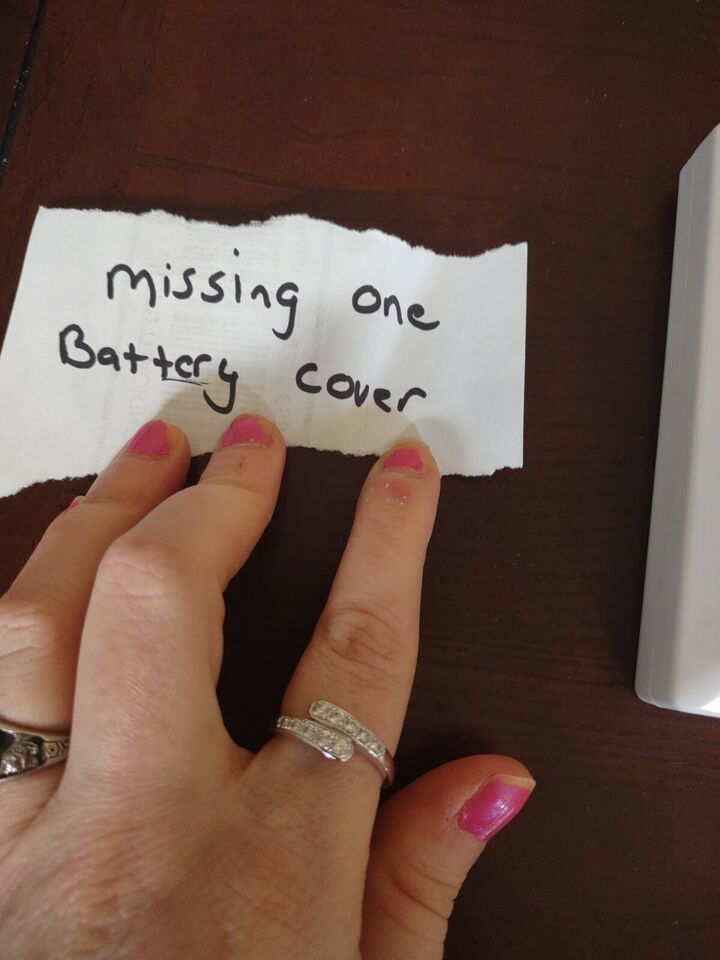 missing one
Battery cover